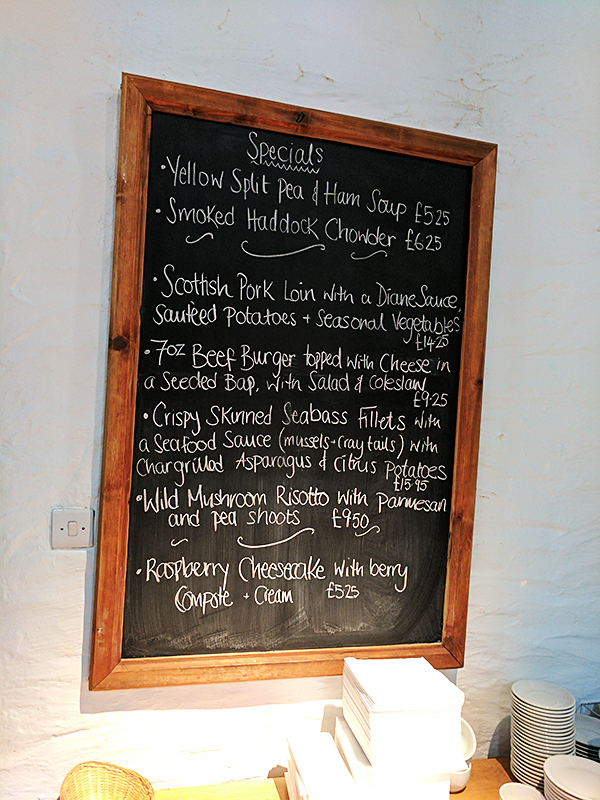 Specials
• Yellow Split Pea & Ham Soup £5.25
• Smoked Haddock Chowder £6.25
• Scottish Pork Loin with a Diane Sauce,
Sautéed Potatoes + Seasonal Vegetables
£14.25
• 7oz Beef Burger topped with Cheese in
a Seeded Bap, with Salad & Coleslaw
£9.25
• Crispy Skinned Seabass Fillets with
a Seafood Sauce (mussels + cray tails) with
Chargrilled Asparagus & Citrus Potatoes
£15.95
• Wild Mushroom Risotto with Parmesan
and pea shoots £9.50
• Raspberry Cheesecake with berry
Compote + Cream £5.25